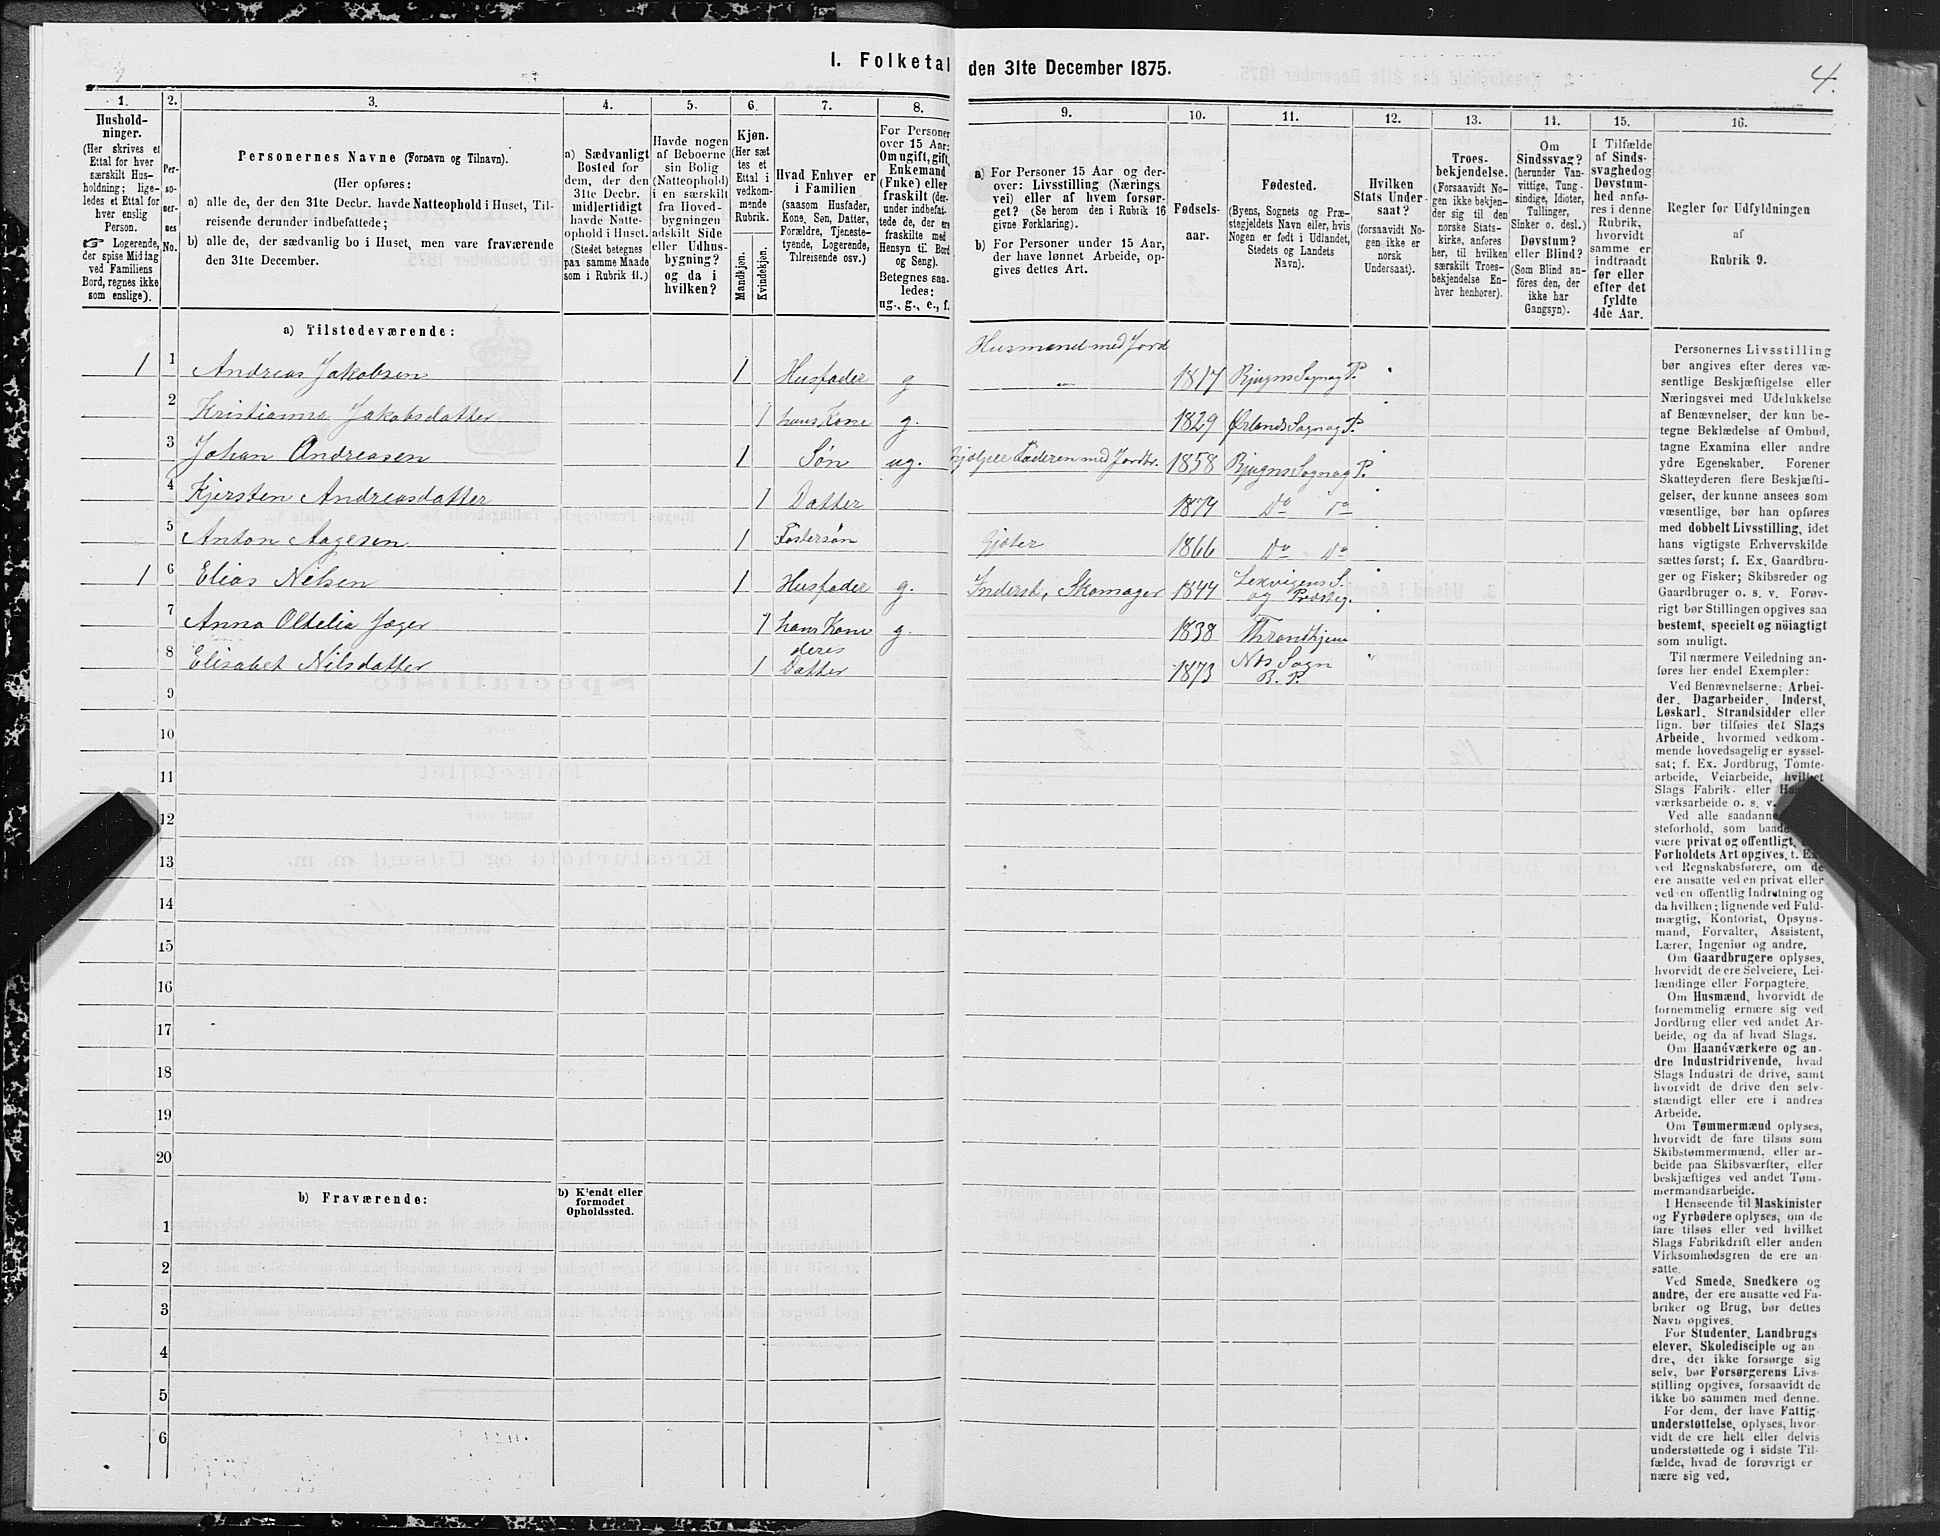 I. Folketal den 31te December 1875.
4.
1.
Hushold-
ninger.
(Her skrives et
Ettal for hver
særskilt Hus-
holdning; lige-
ledes et Ettal for
hver enslig
Person.
Logerende,
der spise Middag
ved Familiens
Bord, regnes ikke
som enslige).
2.
Per-
so-
ner-
nes
No.
3.
Personernes Navne (Fornavn og Tilnavn).
(Her opføres:
a) alle de, der den 31te Decbr. havde Natteophold i Huset, Til-
reisende derunder indbefattede;
b) alle de, der sædvanlig bo i Huset, men vare fraværende
den 31te December.
4.
a) Sædvanligt
Bosted for
dem, der den
31te Decbr.
midlertidigt
havde Natte-
ophold i Huset.
(Stedet betegnes
paa samme Maade
som i Rubrik 11.)
5.
Havde nogen
af Beboerne
sin Bolig
(Natteophold)
i en særskilt
fra Hoved-
bygningen
adskilt Side
eller Udhus-
bygning?
og da i
hvilken?
6.
Kjøn.
(Her sæt
tes et
Ettal i
vedkom-
mende
Rubrik.
Mandkjøn.
Kvindekjøn.
7.
Hvad Enhver er
i Familien
(saasom Husfader,
Kone, Søn, Datter,
Forældre, Tjeneste-
tyende, Logerende,
Tilreisende osv.)
8.
For Personer
over 15 Aar:
Om ugift, gift,
Enkemand
(Enke) eller
fraskilt (der-
under indbefat-
tede de, der ere
fraskilte med
Hensyn til Bord
og Seng).
Betegnes saa-
ledes:
ug., g., e., f.
9.
a) For Personer 15 Aar og der-
over: Livsstilling (Nærings-
vei) eller af hvem forsør-
get? (Se herom den i Rubrik 16
givne Forklaring).
b) For Personer under 15 Aar,
der have lønnet Arbeide, op-
gives dettes Art.
10.
Fødsels-
aar.
11.
Fødested.
(Byens, Sognets og Præ-
stegjeldets Navn eller, hvis
Nogen er født i Udlandet,
Stedets og Landets
Navn).
12.
Hvilken
Stats Under-
saat?
(forsaavidt No-
gen ikke er
norsk
Undersaat).
13.
Troes-
bekjendelse.
(Forsaavidt No-
gen ikke bekjen-
der sig til den
norske Stats-
kirke, anføres
her, til hvilken
særskilt Troes-
bekjendelse En-
hver henhører).
14.
Om
Sindssvag?
(herunder Van-
vittige, Tung-
sindige, Idioter,
Tullinger,
Sinker o. desl.)
Døvstum?
eller Blind?
(Som Blind an-
føres den, der
ikke har
Gangsyn).
15.
I Tilfælde
af Sinds-
svaghed og
Døvstum-
hed anfø-
res i denne
Rubrik,
hvorvidt
samme er
indtraadt
før eller
efter det
fyldte
4de Aar.
16.
Regler for Udfyldningen
af
Rubrik 9.
a) Tilstedeværende:
Husmand med Jord
1 1 Andreas Jakobsen 1 Husfader g „ 1817 Bjugns Sogn og P.
2 Kristianna Jakobsdatter 1 hans Kone g. 1829 Ørlands Sogn og P.
3 Johan Andreasen 1 Søn ug. hjælper Faderen med Jordbr. 1858 Bjugns Sogn og P.
4 Kjersten Andreasdatter 1 Datter 1874 Do Do
5 Anton Aagesen 1 Fostersøn Gjæter 1866 Do Do
1 6 Elias Nilsen 1 Husfader g. Inderst, Skomager 1844 Lexvigens S. og Præsteg.
7 Anna Oldelia Jæger 1 hans Kone g. 1838 Throndhjem
8 Elisabet Nilsdatter 1 deres Datter 1873 Nes Sogn B. P.
9
10
11
12
13
14
15
16
17
18
19
20
b) Fraværende:
b) Kjendt eller
formodet
Opholdssted.
1
2
3
4
5
6
Personernes Livsstilling
bør angives efter deres væ-
sentlige Beskjæftigelse eller
Næringsvei med Udelukkelse
af Benævnelser, der kun be-
tegne Beklædelse af Ombud,
tagne Examina eller andre
ydre Egenskaber. Forener
Skatteyderen flere Beskjæfti-
gelser, der kunne ansees som
væsentlige, bør han opføres
med dobbelt Livsstilling, idet
hans vigtigste Erhvervskilde
sættes først; f. Ex. Gaardbru-
ger og Fisker; Skibsreder og
Gaardbruger o. s. v. Forøv-
rigt bør Stillingen opgives saa
bestemt, specielt og nøiagtigt
som muligt.
Til nærmere Veiledning an-
føres her endel Exempler:
Ved Benævnelserne: Arbei-
der, Dagarbeider, Inderst,
Løskarl, Strandsidder eller
lign. bør tilføies det Slags
Arbeide, hvormed vedkom-
mende hovedsagelig er syssel-
sat; f. Ex. Jordbrug, Tomte-
arbeide, Veiarbeide, hvilket
Slags Fabrik- eller Haand-
værksarbeide o. s. v.
Ved alle saadanne
steforhold, som baade
være privat og offentligt,
Forholdets Art opgives, t. Ex.
ved Regnskabsførere, om de
ere ansatte ved en privat eller
ved en offentlig Indretning og
da hvilken; lignende ved Fuld-
mægtig, Kontorist, Opsyns-
mand, Forvalter, Assistent,
Lærer, Ingeniør og andre.
Om Gaardbrugere oplyses,
hvorvidt de ere Selveiere, Lei-
lændinge eller Forpagtere.
Om Husmænd, hvorvidt de
fornemmelig ernære sig ved
Jordbrug eller ved andet Ar-
beide, og da af hvad Slags.
Om Haandværkere og an-
dre Industridrivende, hvad
Slags Industri de drive, samt
hvorvidt de drive den selv-
stændigt eller ere i andres
Arbeide.
Om Tømmermænd oplyses,
hvorvidt de fare tilsøs som
Skibstømmermænd, eller ar-
beide paa Skibsværfter, eller
beskjæftiges ved andet Tøm-
mermandsarbeide.
I Henseende til Maskinister
og Fyrbødere oplyses, om de
fare tilsøs eller ved hvilket
Slags Fabrikdrift eller anden
Virksomhedsgren de ere an-
satte.
Ved Smede, Snedkere og
andre, der ere ansatte ved Fa-
briker og Brug, bør dettes
Navn opgives.
For Studenter, Landbrugs-
elever, Skoledisciple og an-
dre, der ikke forsørge sig
selv, bør Forsørgerens Livs-
stilling opgives, forsaavidt de
ikke bo sammen med denne.
For dem, der have Fattig-
understøttelse, oplyses, hvor-
vidt de ere helt eller delvis
understøttede og i sidste Til-
fælde, hvad de forøvrigt er-
nære sig ved.